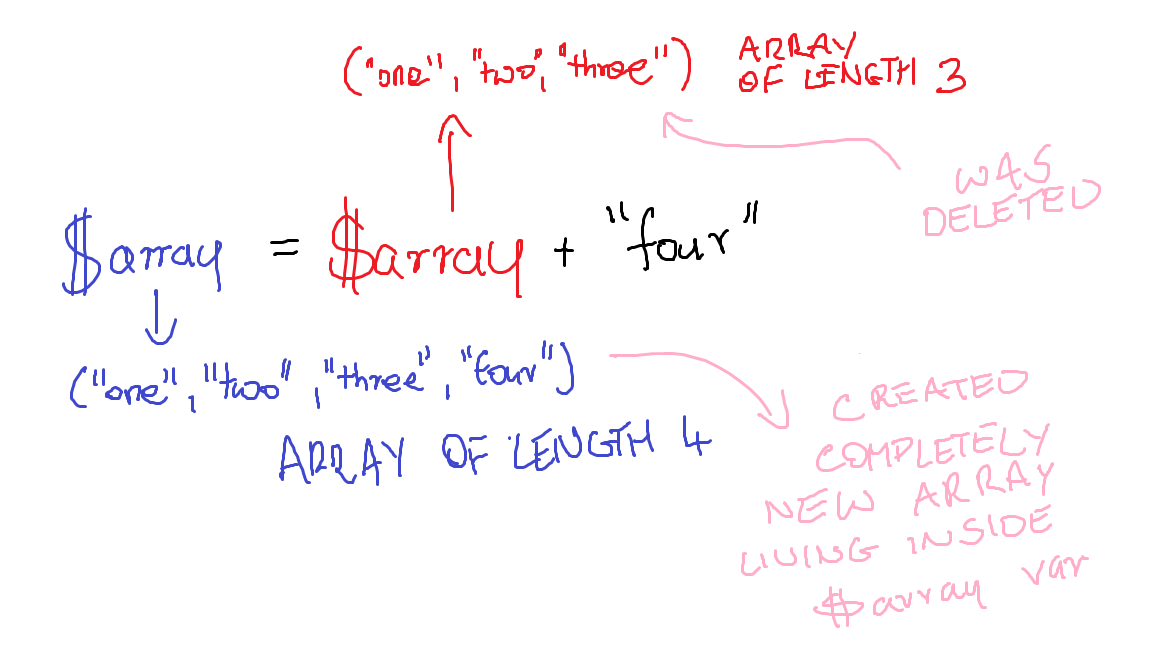 ("one", "two", "three") ARRAY
OF LENGTH 3
WAS
DELETED
$array = $array + "four"
("one", "two", "three", "four")
ARRAY OF LENGTH 4
CREATED
COMPLETELY
NEW ARRAY
LIVING INSIDE
$array var